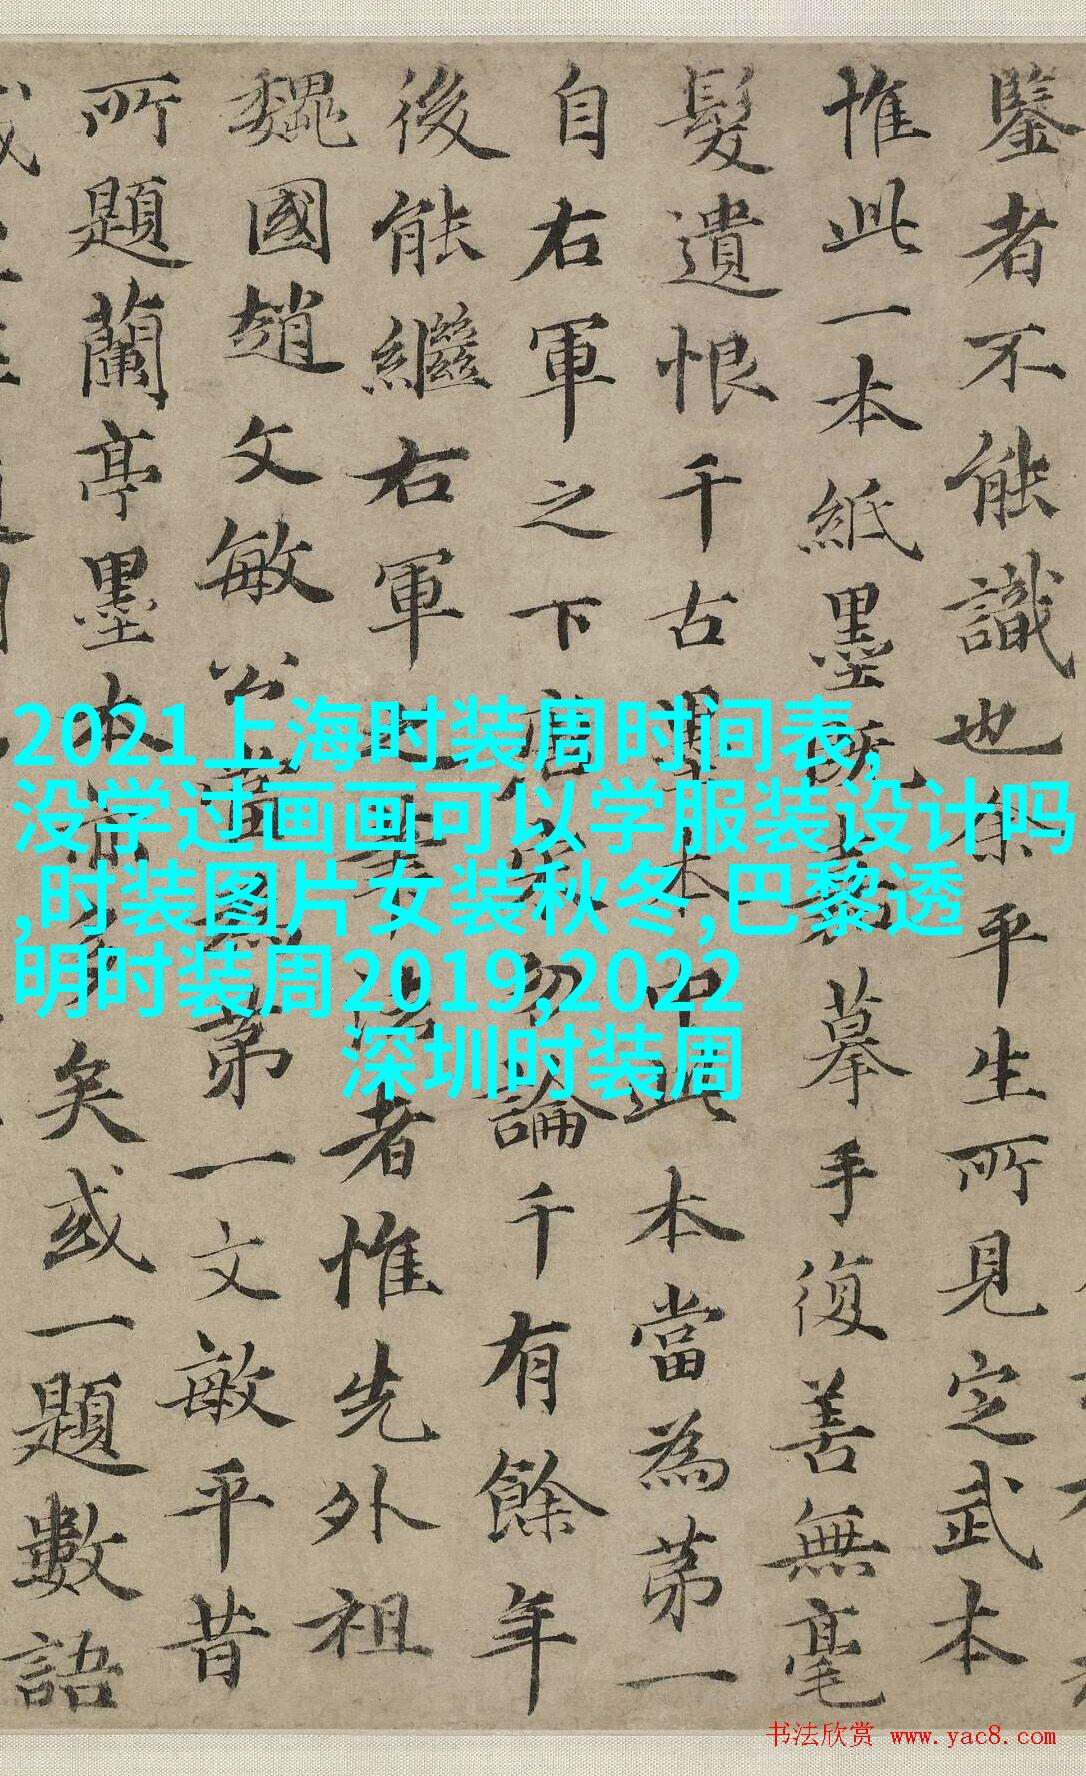 鑒者不能識也余平生所見定武本
惟此一本紙墨既摹手復善無毫
髮遺恨千古墨本中此本當為第一
自右軍之下唐宋勿論千有餘年
後能繼右軍之筆法者惟先外祖
魏國趙文敏公當為第一文敏平昔
所題蘭亭墨本亦多矣或一題數語
2021上海时装周时间表,
没学过画画可以学服装设计吗
,时装图片女装秋冬,巴黎透
明时装周2019,2022
深圳时装周
书法欣赏 www.yac8.com